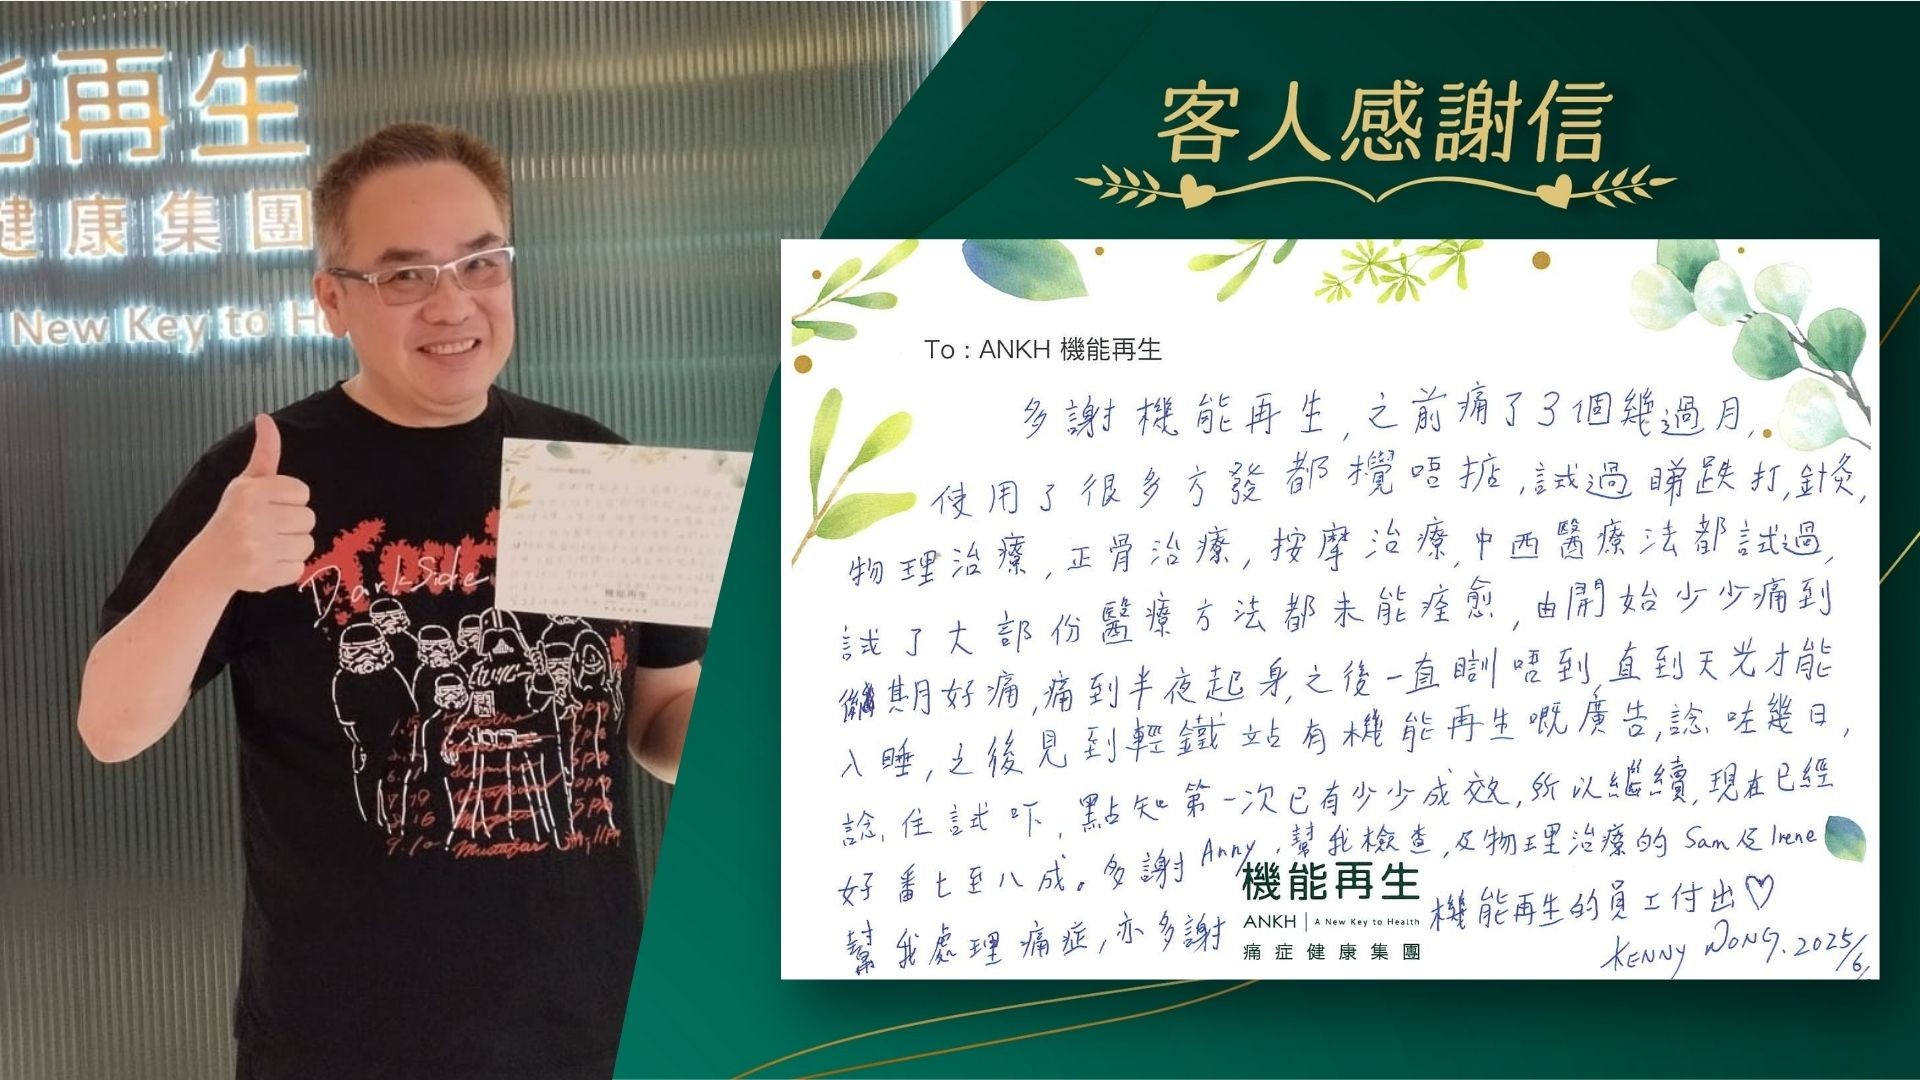 能再生
健康集團
New Key to He
Dark Side
客人感謝信
To : ANKH 機能再生
多謝機能再生,之前痛了3個幾過月,
使用了很多方發都攪唔掂,試過睇跌打,針灸,
物理治療,正骨治療,按摩治療,中西醫療法都試過,
試了大部份醫療方法都未能痊愈,由開始少少痛到
期好痛,痛到半夜起身,之後一直瞓唔到,直到天光才能
入睡,之後見到輕鐵站有機能再生嘅廣告,諗咗幾日,
諗住試吓,點知第一次已有少少成效,所以繼續,現在已經
好番七至八成。多謝Anny,幫我檢查,及物理治療的Sam及Irene
幫我處理痛症,亦多謝機能再生的員工付出♡
機能再生
ANKH | A New Key to Health
痛症健康集團
KENNY WONG. 2025/6/